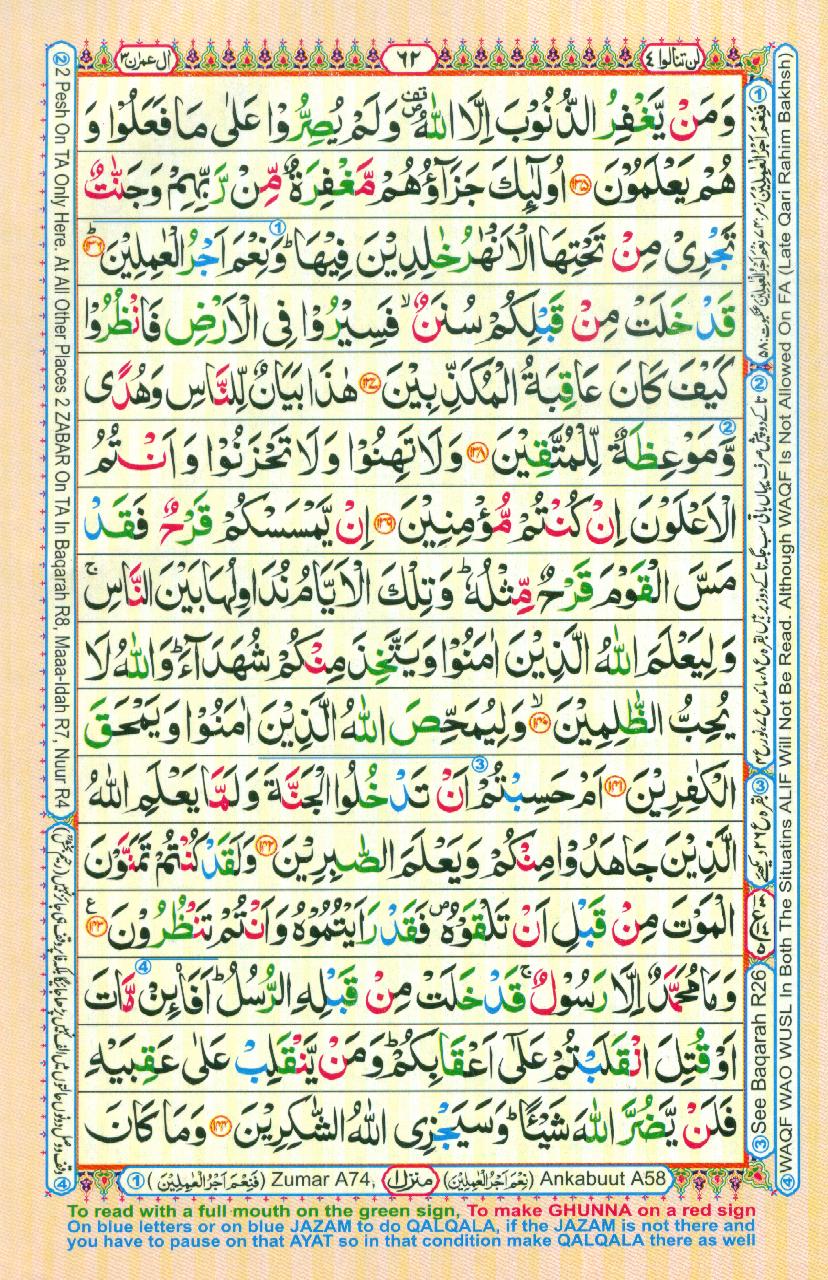 اٰل عمرٰن ٣
٦٢
لن تنالوا ٤
وَمَنْ يَّغْفِرُ الذُّنُوْبَ اِلَّا اللّٰهُ وَلَمْ يُصِرُّوْا عَلٰى مَا فَعَلُوْا وَ
هُمْ يَعْلَمُوْنَ ﴿١٣٥﴾ اُولٰٓئِكَ جَزَآؤُهُمْ مَّغْفِرَةٌ مِّنْ رَّبِّهِمْ وَجَنّٰتٌ
تَجْرِىْ مِنْ تَحْتِهَا الْاَنْهٰرُ خٰلِدِيْنَ فِيْهَا ؕ وَنِعْمَ اَجْرُ الْعٰمِلِيْنَ ؕ ﴿١٣٦﴾
قَدْ خَلَتْ مِنْ قَبْلِكُمْ سُنَنٌ ۙ فَسِيْرُوْا فِى الْاَرْضِ فَانْظُرُوْا
كَيْفَ كَانَ عَاقِبَةُ الْمُكَذِّبِيْنَ ﴿١٣٧﴾ هٰذَا بَيَانٌ لِّلنَّاسِ وَهُدًى
وَّمَوْعِظَةٌ لِّلْمُتَّقِيْنَ ﴿١٣٨﴾ وَلَا تَهِنُوْا وَلَا تَحْزَنُوْا وَاَنْتُمُ
الْاَعْلَوْنَ اِنْ كُنْتُمْ مُّؤْمِنِيْنَ ﴿١٣٩﴾ اِنْ يَّمْسَسْكُمْ قَرْحٌ فَقَدْ
مَسَّ الْقَوْمَ قَرْحٌ مِّثْلُهٗ ؕ وَتِلْكَ الْاَيَّامُ نُدَاوِلُهَا بَيْنَ النَّاسِ ۚ
وَلِيَعْلَمَ اللّٰهُ الَّذِيْنَ اٰمَنُوْا وَيَتَّخِذَ مِنْكُمْ شُهَدَآءَ ؕ وَاللّٰهُ لَا
يُحِبُّ الظّٰلِمِيْنَ ۙ ﴿١٤٠﴾ وَلِيُمَحِّصَ اللّٰهُ الَّذِيْنَ اٰمَنُوْا وَيَمْحَقَ
الْكٰفِرِيْنَ ﴿١٤١﴾ اَمْ حَسِبْتُمْ اَنْ تَدْخُلُوا الْجَنَّةَ وَلَمَّا يَعْلَمِ اللّٰهُ
الَّذِيْنَ جَاهَدُوْا مِنْكُمْ وَيَعْلَمَ الصّٰبِرِيْنَ ﴿١٤٢﴾ وَلَقَدْ كُنْتُمْ تَمَنَّوْنَ
الْمَوْتَ مِنْ قَبْلِ اَنْ تَلْقَوْهُ ۖ فَقَدْ رَاَيْتُمُوْهُ وَاَنْتُمْ تَنْظُرُوْنَ ﴿١٤٣﴾ ع
وَمَا مُحَمَّدٌ اِلَّا رَسُوْلٌ ۚ قَدْ خَلَتْ مِنْ قَبْلِهِ الرُّسُلُ ؕ اَفَا۟ئِنْ مَّاتَ
اَوْ قُتِلَ انْقَلَبْتُمْ عَلٰٓى اَعْقَابِكُمْ ؕ وَمَنْ يَّنْقَلِبْ عَلٰى عَقِبَيْهِ
فَلَنْ يَّضُرَّ اللّٰهَ شَيْـًٔا ؕ وَسَيَجْزِى اللّٰهُ الشّٰكِرِيْنَ ﴿١٤٤﴾ وَمَا كَانَ
① (فَنِعْمَ اَجْرُ الْعٰمِلِيْنَ) Zumar A74, منزل ١ (نِعْمَ اَجْرُ الْعٰمِلِيْنَ) Ankabuut A58
② 2 Pesh On TA Only Here. At All Other Places 2 ZABAR On TA In Baqarah R8, Maaa-Idah R7, Nuur R4
③ See Baqarah R26
④ WAQF WAO WUSL In Both The Situatins ALIF Will Not Be Read. Although WAQF Is Not Allowed On FA (Late Qari Rahim Bakhsh)
To read with a full mouth on the green sign, To make GHUNNA on a red sign
On blue letters or on blue JAZAM to do QALQALA, if the JAZAM is not there and
you have to pause on that AYAT so in that condition make QALQALA there as well